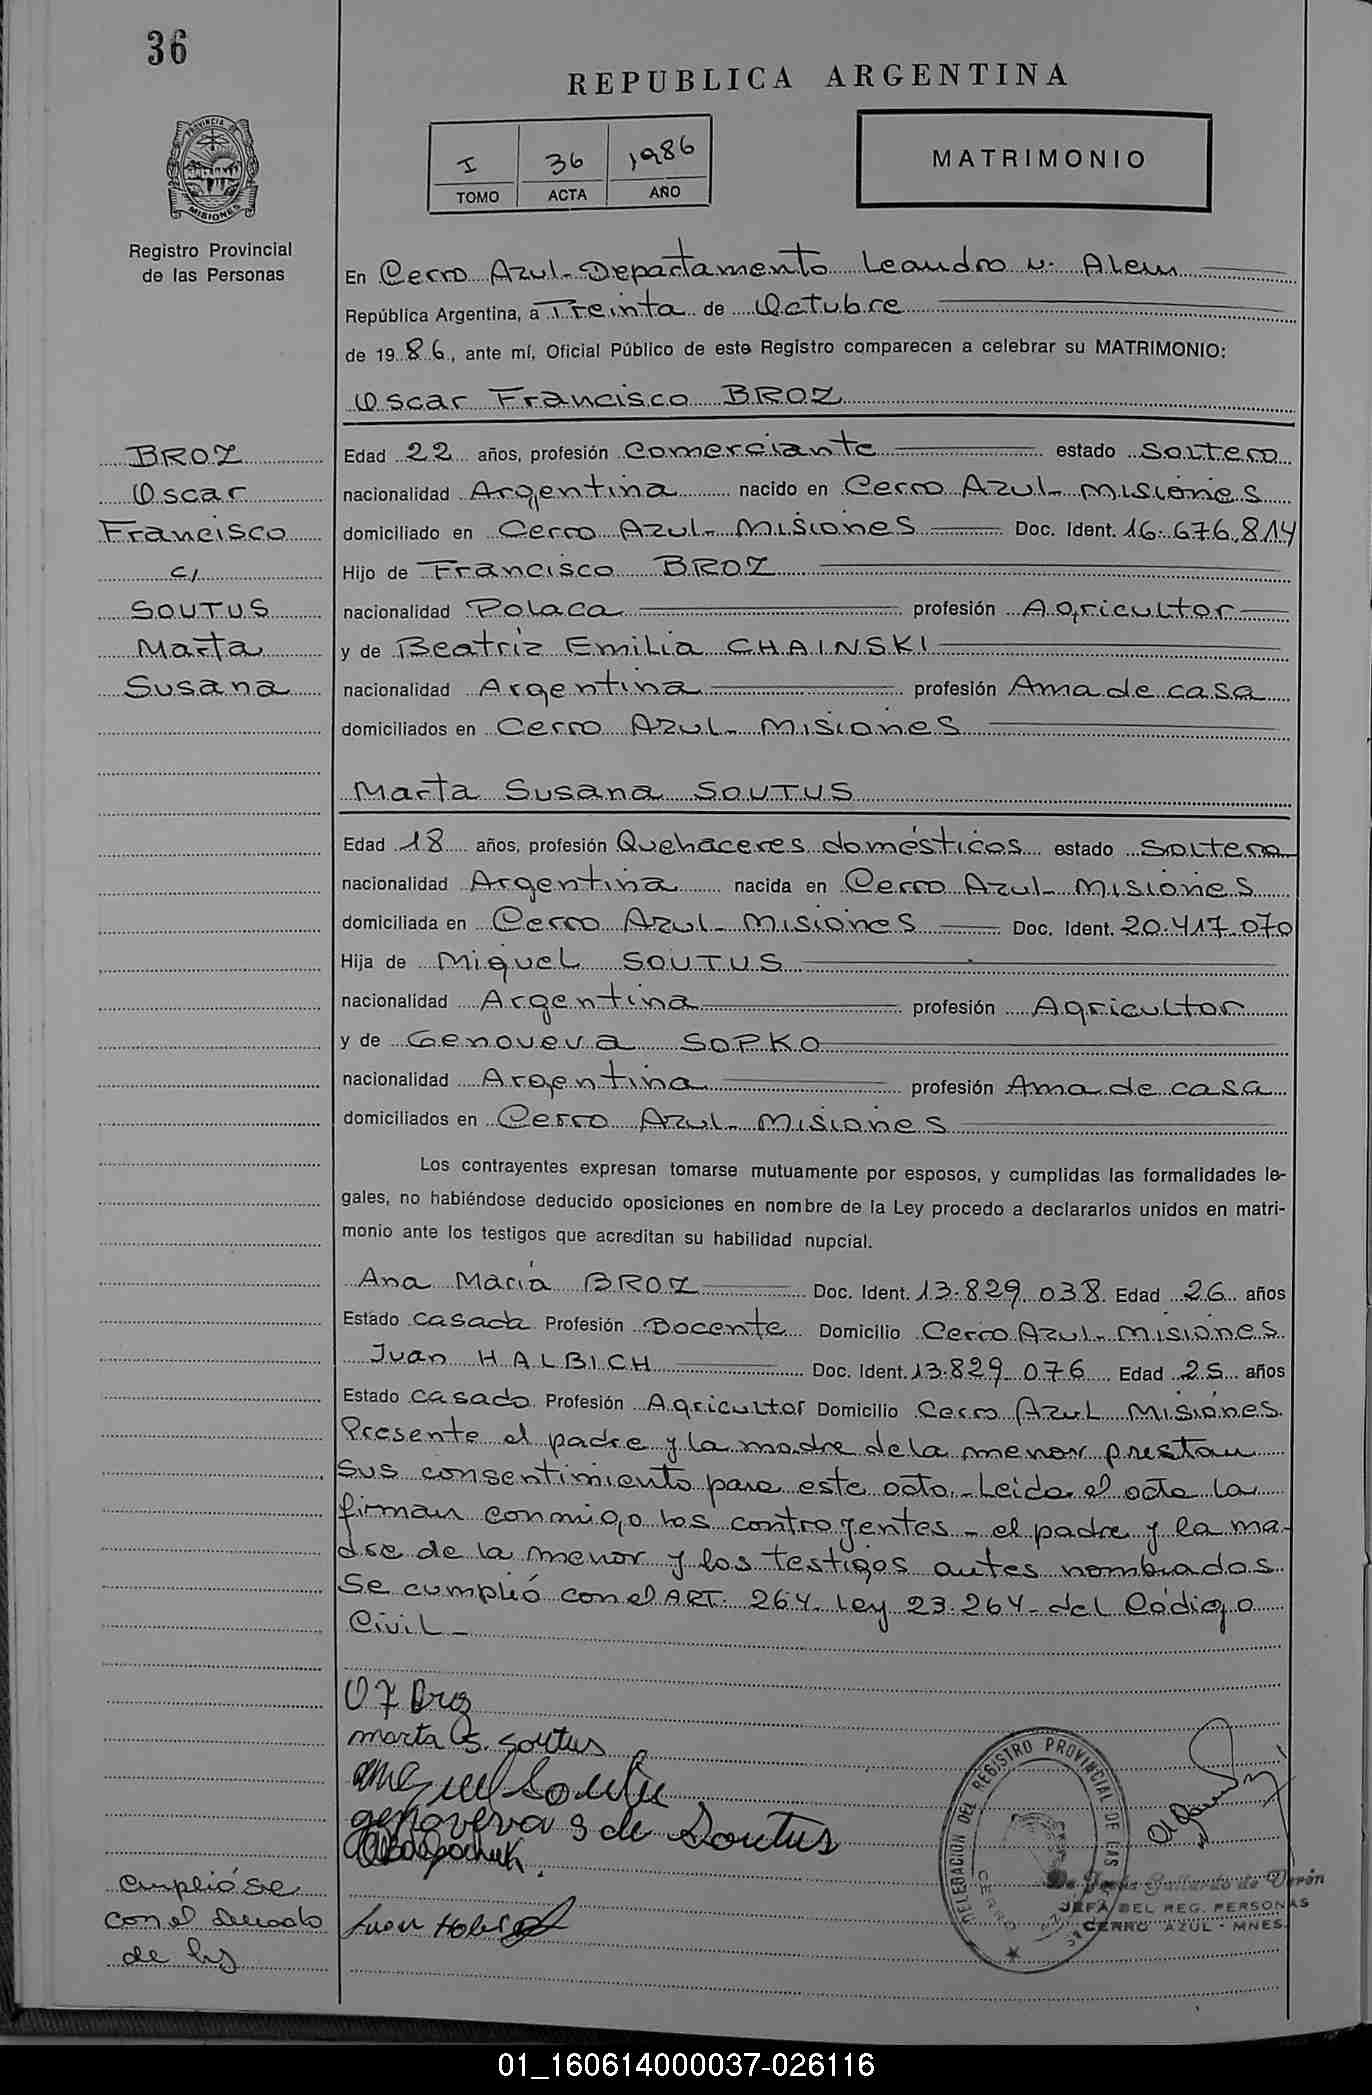 36
REPUBLICA ARGENTINA
I 36 1986
TOMO ACTA AÑO
MATRIMONIO
PROVINCIA DE
MISIONES
Registro Provincial
de las Personas
En Cerro Azul - Departamento Leandro N. Alem
República Argentina, a Treinta de Octubre
de 1986, ante mí, Oficial Público de este Registro comparecen a celebrar su MATRIMONIO:
Oscar Francisco BROZ
BROZ
Oscar
Francisco
c/
SOUTUS
Marta
Susana
Edad 22 años, profesión Comerciante estado Soltero
nacionalidad Argentina nacido en Cerro Azul - Misiones
domiciliado en Cerro Azul - Misiones Doc. Ident. 16.676.814
Hijo de Francisco BROZ
nacionalidad Polaca profesión Agricultor
y de Beatriz Emilia CHAINSKI
nacionalidad Argentina profesión Ama de casa
domiciliados en Cerro Azul - Misiones
Marta Susana SOUTUS
Edad 18 años, profesión Quehaceres domésticos estado Soltera
nacionalidad Argentina nacida en Cerro Azul - Misiones
domiciliada en Cerro Azul - Misiones Doc. Ident. 20.417.070
Hija de Miguel SOUTUS
nacionalidad Argentina profesión Agricultor
y de Genoveva SOPKO
nacionalidad Argentina profesión Ama de casa
domiciliados en Cerro Azul - Misiones
Los contrayentes expresan tomarse mutuamente por esposos, y cumplidas las formalidades le-
gales, no habiéndose deducido oposiciones en nombre de la Ley procedo a declararlos unidos en matri-
monio ante los testigos que acreditan su habilidad nupcial.
Ana María BROZ Doc. Ident. 13.829.038 Edad 26 años
Estado casada Profesión Docente Domicilio Cerro Azul - Misiones
Juan HALBICH Doc. Ident. 13.829.076 Edad 25 años
Estado casado Profesión Agricultor Domicilio Cerro Azul Misiones
Presente el padre y la madre de la menor prestan
sus consentimiento para este acto. - Leida el acta la
firman conmigo los contrayentes - el padre y la ma-
dre de la menor y los testigos antes nombrados
Se cumplió con el ART. 264 - Ley 23.264 - del Código
Civil -
O F Broz
marta S. Soutus
Miguel Soutus
genoveva S de Soutus
Juan Halbich
Cumplió se
con el
de ley
DELEGACION DEL REGISTRO PROVINCIAL DE LAS
CERRO
Gallardo de Verón
JEFA DEL REG. PERSONAS
CERRO AZUL - MNES.
01_160614000037-026116